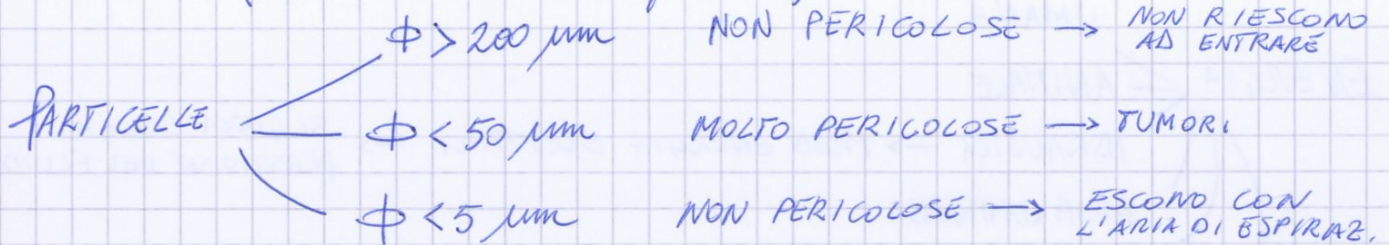 Φ > 200 μm NON PERICOLOSE → NON RIESCONO
AD ENTRARE
PARTICELLE Φ < 50 μm MOLTO PERICOLOSE → TUMORI
Φ < 5 μm NON PERICOLOSE → ESCONO CON
L'ARIA DI ESPIRAZ.